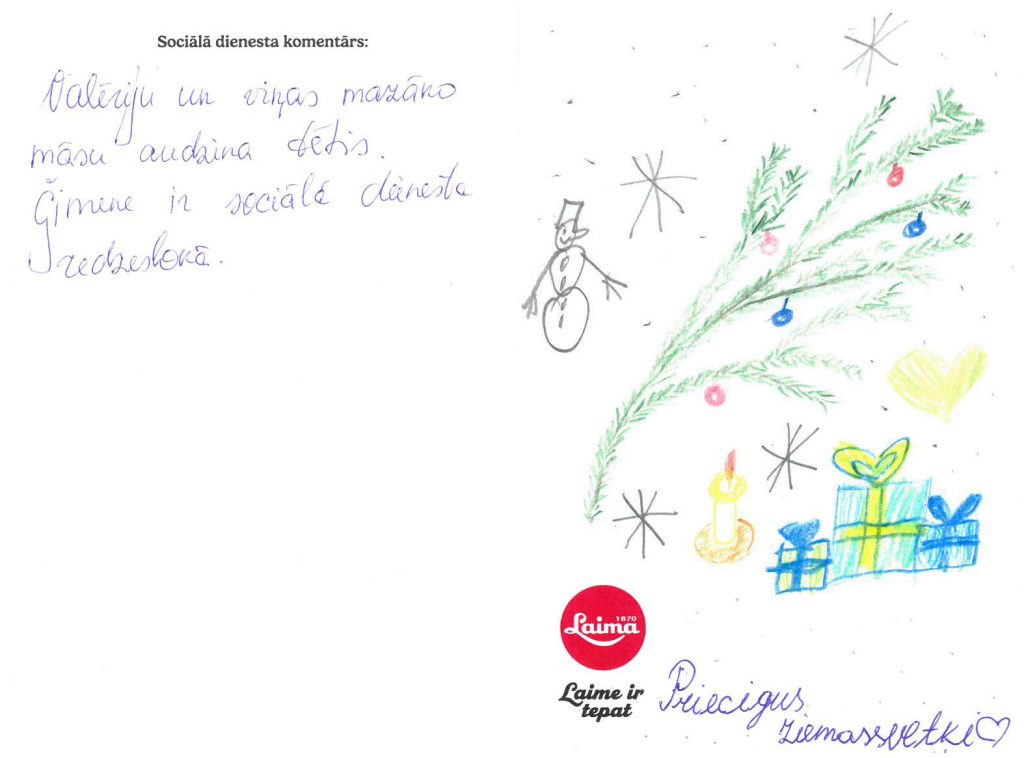 Sociālā dienesta komentārs:
Valēriju un viņas mazāko
māsu audzina tētis.
Ģimene ir sociālā dienesta
redzeslokā.
Laima 1870
Laime ir
tepat
Priecigus
ziemassvetki